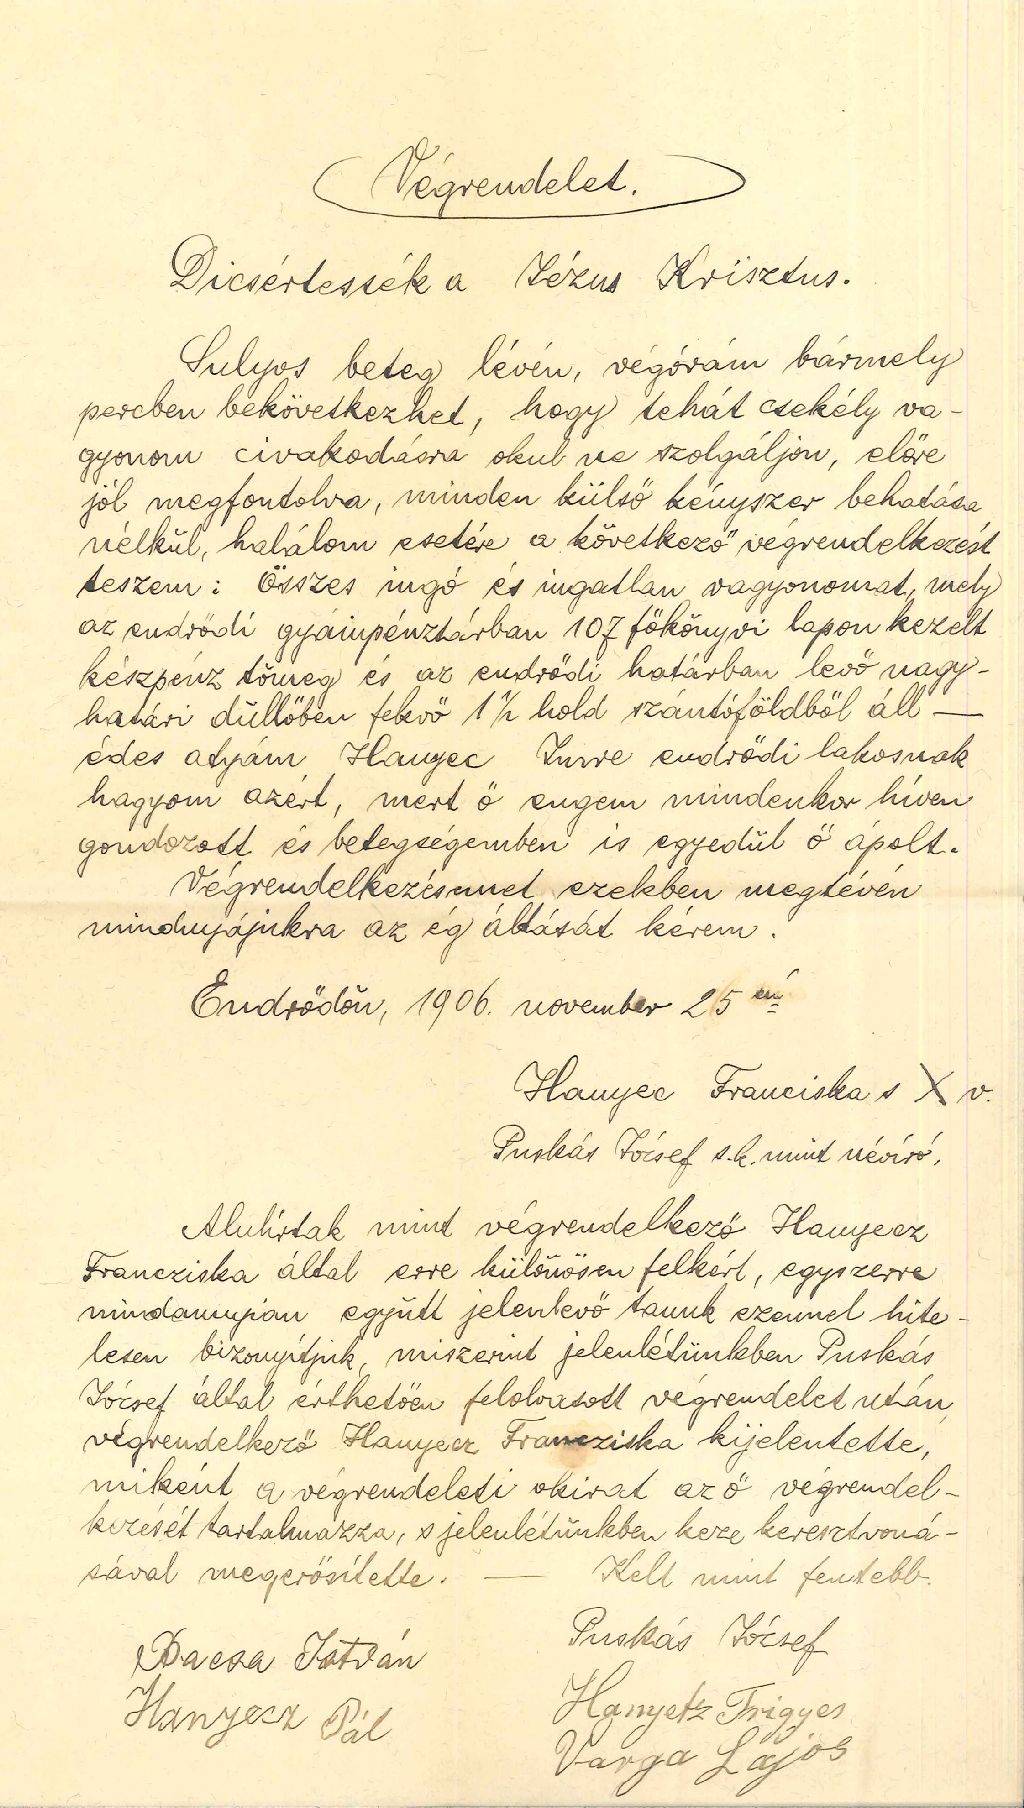 Végrendelet.
Dicsértessék a Jézus Krisztus.
Sulyos beteg lévén, végórám bármely
percben bekövetkezhet, hogy tehát csekély va-
gyonom civakodásra okul ne szolgáljon, előre
jól megfontolva, minden külső kényszer behatása
nélkül, halálom esetére a következő végrendelkezést
teszem: Összes ingó és ingatlan vagyonomat, mely
az endrődi gyámpénztárban 107 főkönyvi lapon kezelt
készpénz tömeg és az endrődi határban levő nagy-
határi düllőben fekvő 1 1/2 hold szántóföldből áll —
édes atyám Hanyec Imre endrődi lakosnak
hagyom azért, mert ő engem mindenkor híven
gondozott és betegségemben is egyedül ő ápolt.
Végrendelkezésemet ezekben megtévén
mindnyájukra az ég áldását kérem.
Endrődön, 1906. november 25 én
Hanyec Franciska s X v.
Puskás József s.k. mint névíró.
Alulírtak mint végrendelkező Hanyecz
Francziska által erre különösen felkért, egyszerre
mindannyian együtt jelenlevő tanuk ezennel hite-
lesen bizonyítjuk, miszerint jelenlétünkben Puskás
József által érthetően felolvasott végrendelet után
végrendelkező Hanyecz Francziska kijelentette,
miként a végrendeleti okirat az ő végrendel-
kezését tartalmazza, s jelenlétünkben keze keresztvoná-
sával megerősítette. — Kelt mint fentebb.
Puskás József
Dacsa István
Hanyecz Pál
Hanyetz Frigyes
Varga Lajos